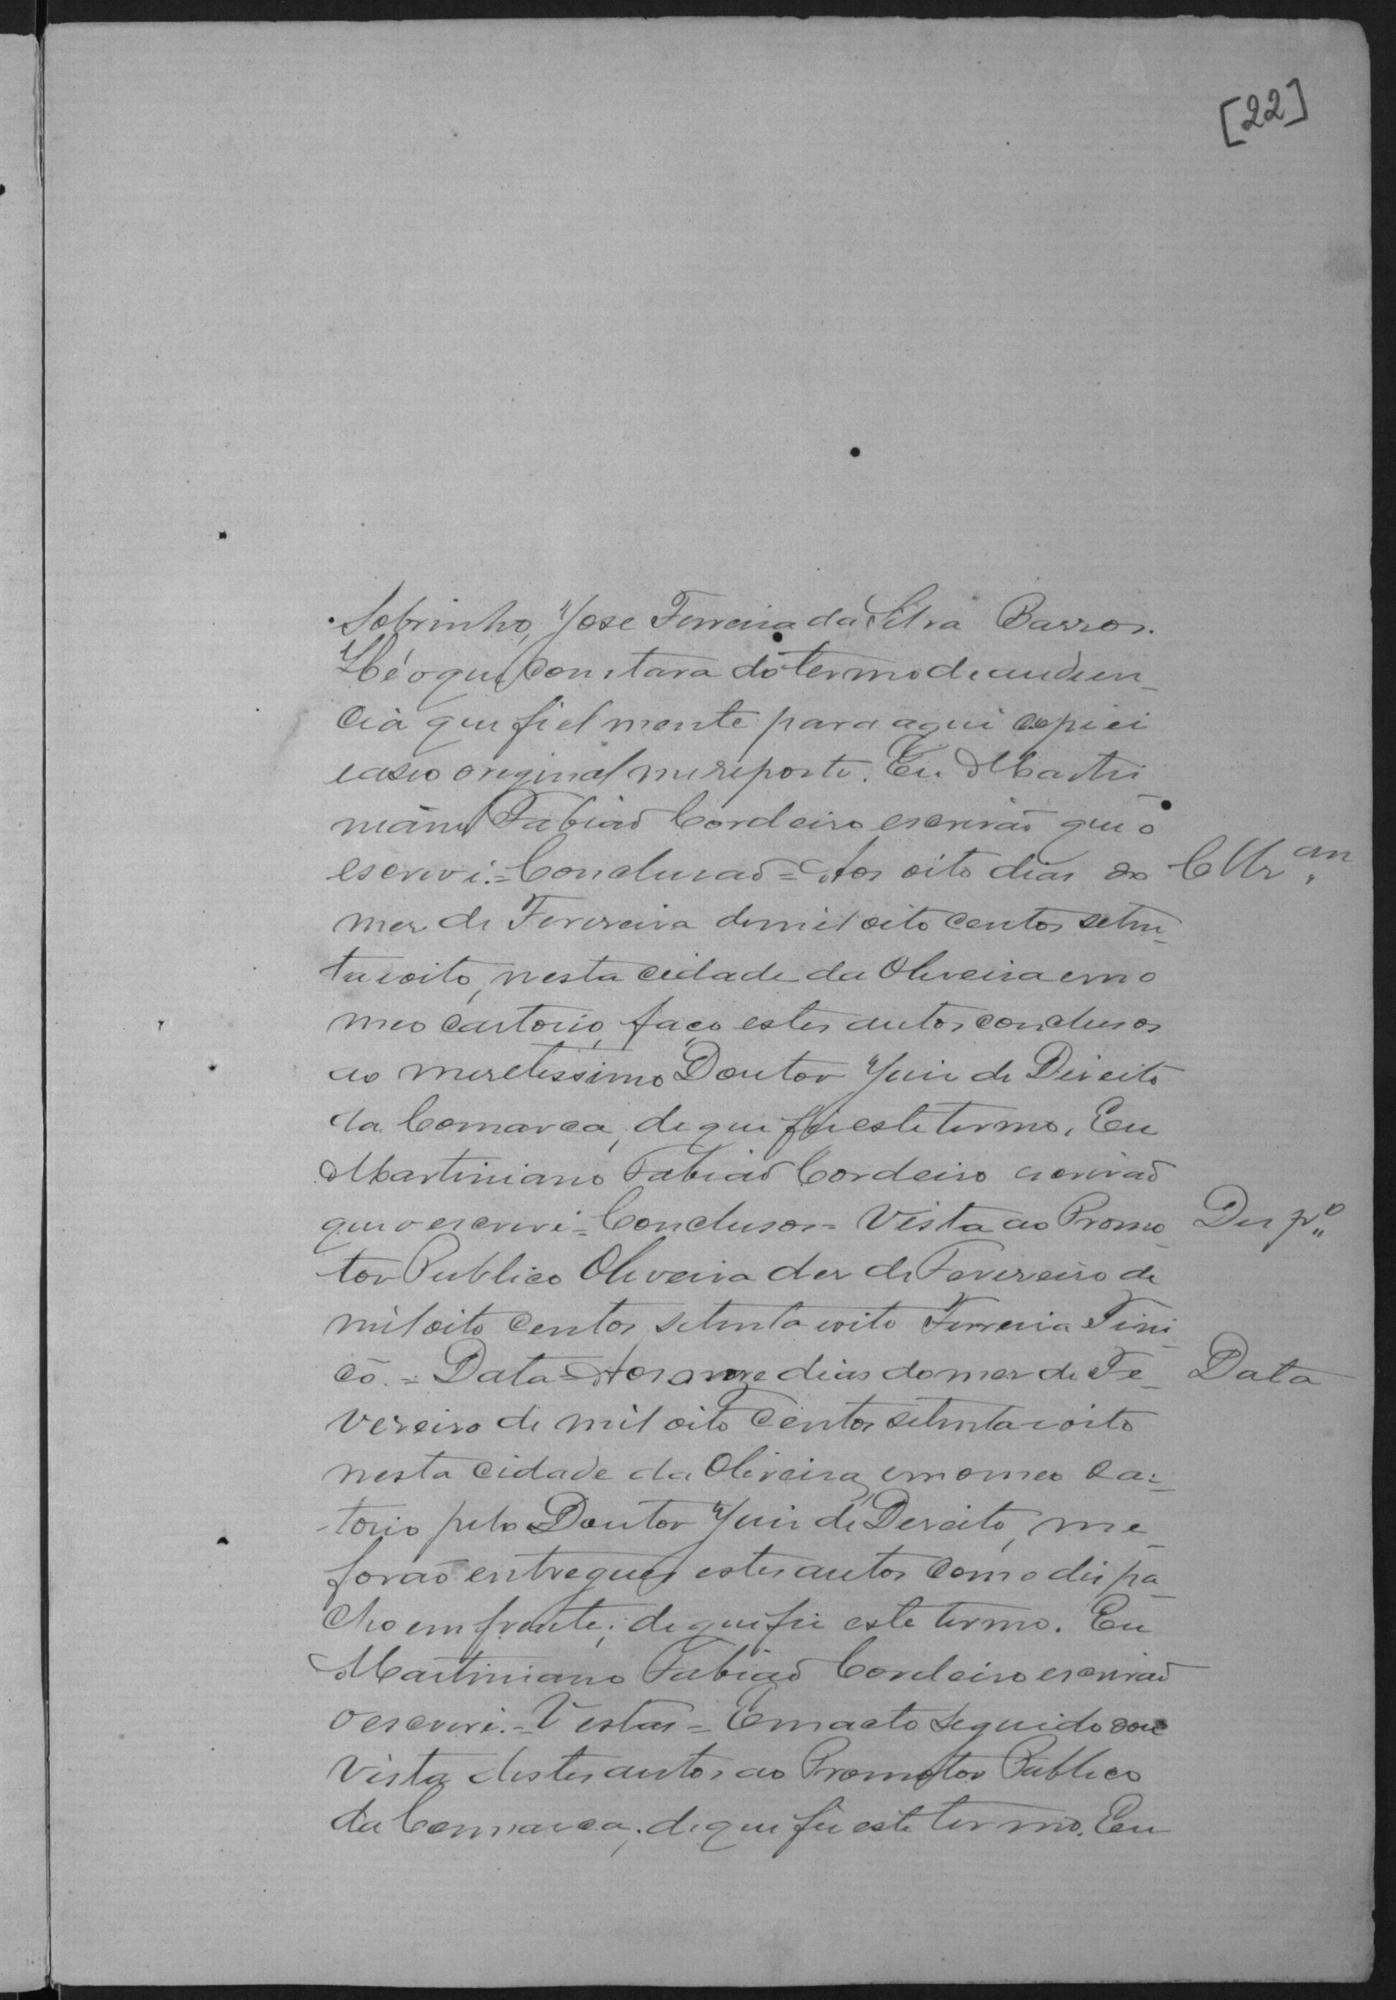 [22]
Sobrinho, Jose Ferreira da Silva Barros.
Hé o que constava do termo de audien-
cia que fielmente para aqui copiei
e ao seo original me reporto. Eu Marti
niano Fabiaõ Cordeiro escrivaõ que o
escrevi. = Conclusaõ = Aos oito dias do
mes de Fevereiro de mil oito centos seten-
ta e oito, nesta cidade da Oliveira em o
meo cartorio, faço estes autos conclusos
ao meretissimo Doutor Juis de Direito
da Comarca, de que fis este termo. Eu
Martiniano Fabiaõ Cordeiro escrivaõ
que o escrevi = Conclusos = Vista ao Promo- Desp.o
tor Publico Oliveira des de Fevereiro de
mil oito centos setenta e oito Ferreira Tini-
co. = Data = Aos onze dias do mes de Fe- Data
vereiro de mil oito centos setenta e oito
nesta cidade da Oliveira, em o meo car-
torio pelo Doutor Juis de Dereito, me
foraõ entregues estes autos com o dispa-
cho em frente; de que fis este termo. Eu
Martiniano Fabiaõ Cordeiro escrivaõ
o escrevi. = Vistas = Em acto seguido dou
vista destes autos ao Promotor Publico
da Comarca; de que fis este termo. Eu